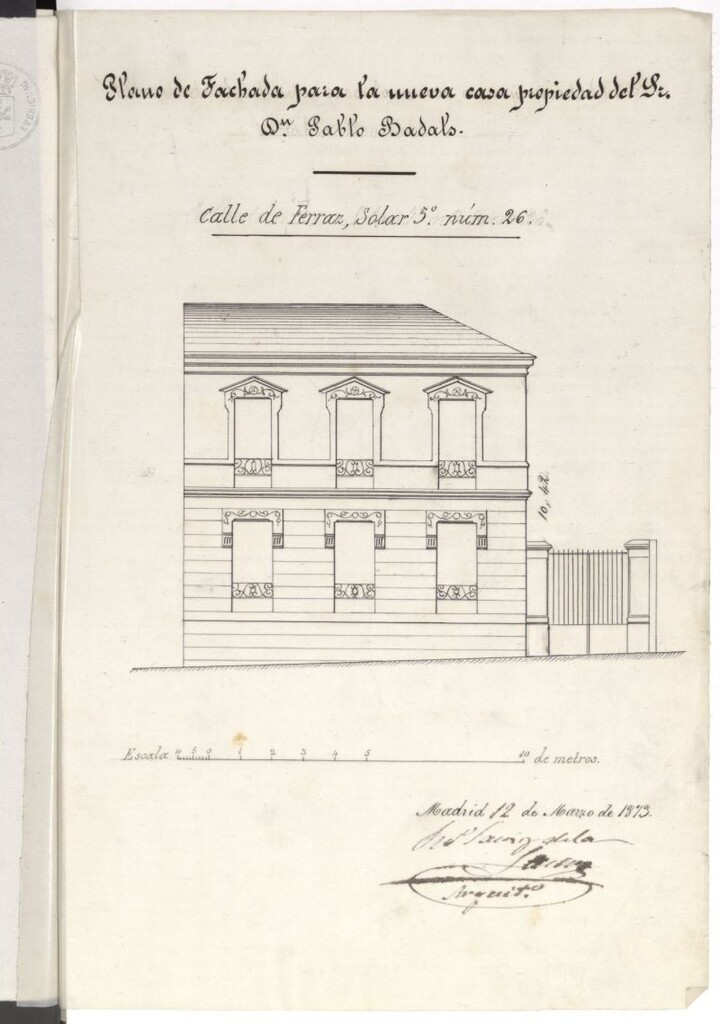 Plano de Fachada para la nueva casa propiedad del Sr.
Dn. Pablo Badals.
Calle de Ferraz, Solar 5º. núm. 26.
10,, 42
Escala 5 0 1 2 3 4 5 10 de metros.
Madrid 12 de Marzo de 1873.
de la
Arquitº